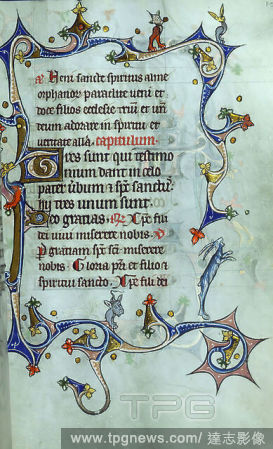 Veni sancte spiritus amme
orphanor paraclite veni et
doce filios ecclesie trin et un
deum adorare in spiritu et
veritate alla. capitulum.
Tres sunt qui testimo
nium dant in celo
pater ūbum & spc sanctu
hij tres unum sunt.
Deo gratias. R. Xpe fili
dei vivi miserere nobis. P
P gratiam spc sci miserere
nobis. Gloria pri et filio et
spiritui sancto. Xpe fili dei
TPG
www.tpgnews.com/ 達志影像